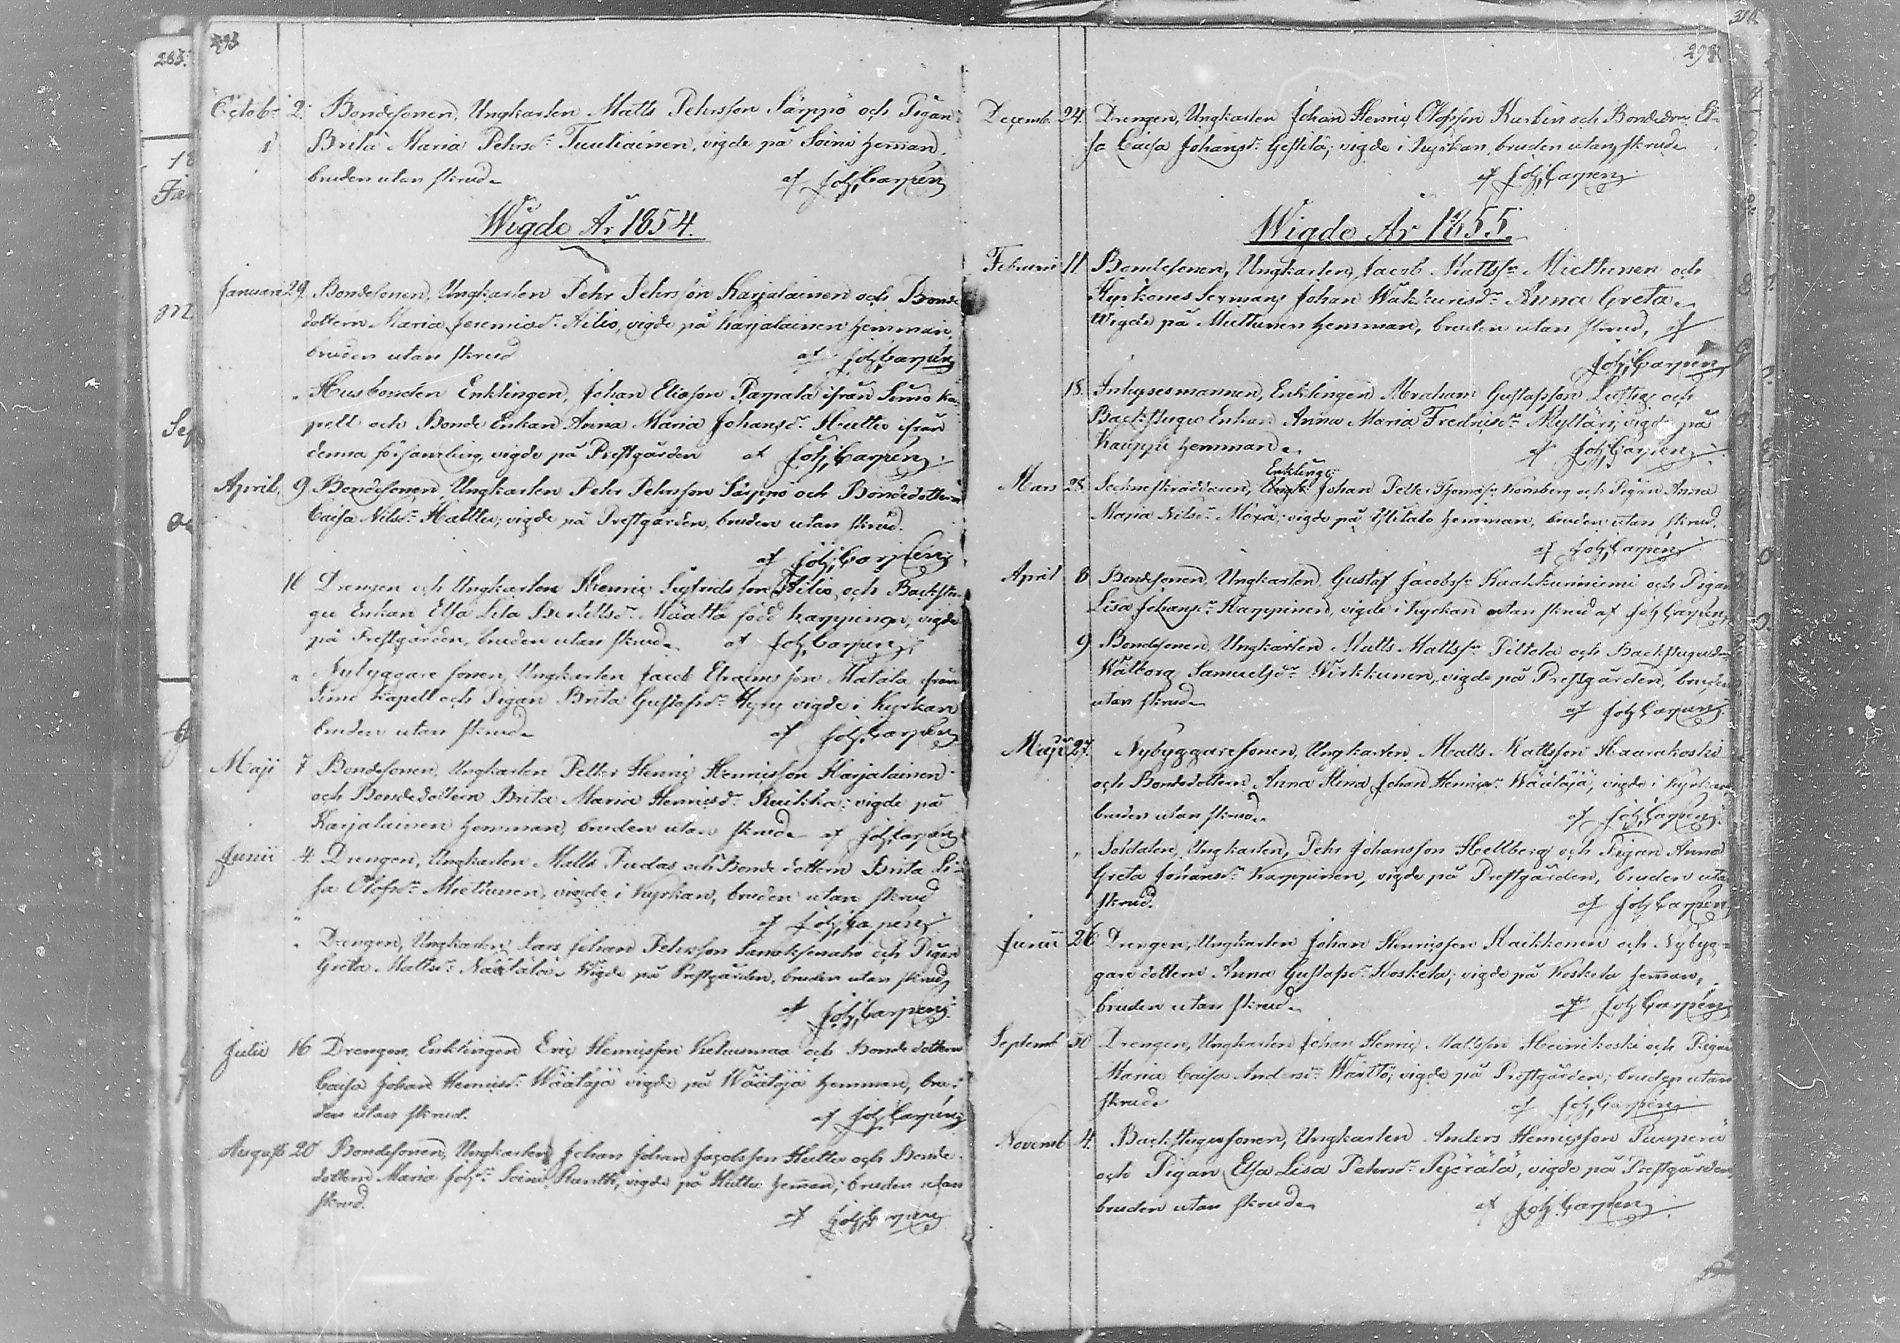 293
Octobr 2. Bondesonen, Ungkarlen Matts Pehrsson Särppö och Pigan
Brita Maria Pehrsdr Tuuliainen, vigde på Soini Hemman,
bruden utan skrud. af Joh. Carpén
Wigde År 1854.
Januari 29. Bondesonen, Ungkarlen Pehr Pehrsson Karjalainen och Bonde
dottern Maria Jeremiædr Ailio, vigde på Karjalainen hemman,
bruden utan skrud af Joh. Carpén
" Husbonden Enklingen, Johan Eliasson Parpala ifrån Simo Ka-
pell och Bonde Enkan Anna Maria Johansdr Huttu ifrån
denna församling, vigde på Prestgården af Joh. Carpén
April 9 Bondesonen, Ungkarlen Pehr Pehrsson Särppö och Bondedottern
Caisa Nilsdr Hattu, vigde på Prestgården, bruden utan skrud.
af Joh. Carpén
16 Drengen och Ungkarlen Henric Sigfridsson Ailio, och Backstu-
gu Enkan Elsa Lisa född Karppinen, vigde
på Prestgården, bruden utan skrud. af Joh. Carpén
" Nybyggare sonen, Ungkarlen Jacob Efraimsson Matala ifrån
Simo Kapell och Pigan Brita Gustafsdr Hyry vigde i Kyrkan
bruden utan skrud af Joh. Carpén
Maji 7 Bondesonen, Ungkarlen Petter Henric Henricsson Karjalainen
och Bondedottern Brita Maria Henricsdr Ruikka; vigde på
Karjalainen hemman, bruden utan skrud af Joh. Carpén
Junii 4. Drengen, Ungkarlen Matts Pudas och Bondedottern Brita Li-
sa Olofsdr Miettunen, vigde i Kyrkan, bruden utan skrud
af Joh. Carpén
" Drengen, Ungkarlen Lars Johan Pehrsson och Pigan
Greta Mattsdr Näätälä. Wigde på Prestgården, bruden utan skrud,
af Joh. Carpén
Julii 16 Drengen, Enklingen Eric Henricsson Kehusmaa och Bondedottern
Caisa Johan Henricsdr Wäätäjä vigde på Wäätäjä hemman, bru-
den utan skrud. af Joh. Carpén
August 20 Bondesonen, Ungkarlen Johan Johan Jacobsson Huttu och Bonde
dottern Maria Johsdr Soini vigde på Huttu heman; bruden utan
skrud.
af Joh. Carpén
Decemb. 24. Drengen, Ungkarlen Johan Henric Olofsson Kurkin och Bondedotr El-
sa Caisa Johansdr vigde i Kyrkan, bruden utan skrud
af Joh. Carpén
Wigde År 1855.
Februarii 11 Bondesonen, Ungkarlen, Jacob Mattssn Miettunen och
Kyrkones Johan Wakkurisdr Anna Greta.
Wigde på Miettunen Hemman, bruden utan skrud, af
Joh. Carpén
18. Inhysesmannen, Enklingen Abraham Gustafsson och
Backstugu Enkan Anna Maria Fredricsdr Mylläri, vigde på
Kauppi hemman. af Joh. Carpén
Enkling
Mars 28. Sockneskräddaren, Johan Petter Thomassn och Pigan Anna
Maria Nilsdr vigde på Ylitalo hemman, bruden utan skrud.
af Joh. Carpén
April 8 Bondesonen, Ungkarlen, Gustaf Jacobssn Kaakkurinniemi och Pigan
Lisa Johansdr Karppinen, vigde i Kyrkan utan skrud af Joh. Carpén
9 Bondesonen, Ungkarlen Matts Mattssn Pittola och Backstugudr
Walborg Samuelsdr Wirkkunen, vigde på Prestgården, bruden
utan skrud. af Joh. Carpén
Maji 27. Nybyggaresonen, Ungkarlen Matts Mattsson Haarakoski
och Bondedottern Anna Stina Johan Henricsdr Wäätäjä, vigde i Kyrkan
bruden utan skrud. af Joh. Carpén
" Soldaten, Ungkarlen, Pehr Johansson Hellberg och Pigan Anna
Greta Johansdr Karppinen, vigde på Prestgården, bruden utan
skrud. af Joh. Carpén
Junii 26 Drengen, Ungkarlen Johan Henricsson Kaikkonen och Nybyg-
gare dottern Anna Gustafsdr Koskela, vigde på Koskela heman,
bruden utan skrud. af Joh. Carpén
Septemb. 30 Drengen, Ungkarlen Johan Henric Mattsson Heinikoski och Pigan
Maria Caisa Andersdr Wärttö, vigde på Prestgården; bruden utan
skrud af Joh. Carpén
Novemb. 4. Backstugusonen, Ungkarlen Anders Henricsson Paaperi
och Pigan Elsa Lisa Pehrsdr Pyörälä, vigde på Prestgården,
bruden utan skrud. af Joh. Carpén